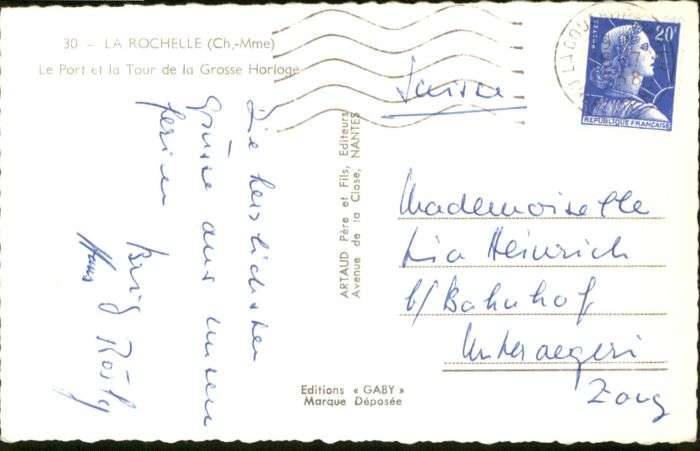 30 - LA ROCHELLE (Ch.-Mme)
Le Port et la Tour de la Grosse Horloge
Die herzlichsten
Grüsse aus unsern
ferien
Hans
ARTAUD Père et Fils, Editeurs
Avenue de la Close, NANTES
Editions « GABY »
Marque Déposée
POSTES
20F
REPUBLIQUE FRANÇAISE
Suisse
Mademoiselle
Lia Heinrich
b/Bahnhof
Unteraegeri
Zoug